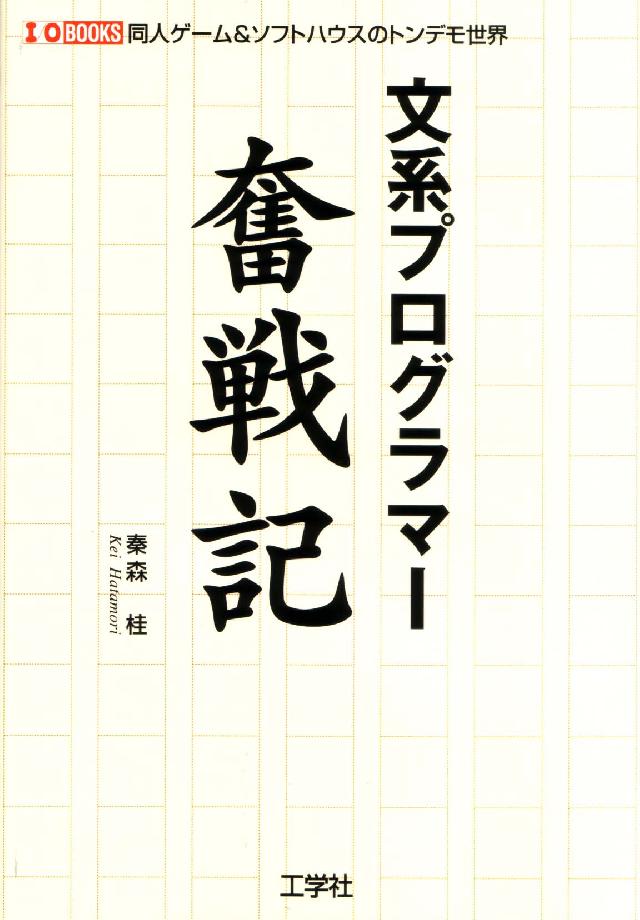 I/O BOOKS 同人ゲーム&ソフトハウスのトンデモ世界
文系プログラマー
奮戦記
秦森 桂
Kei Hatamori
工学社